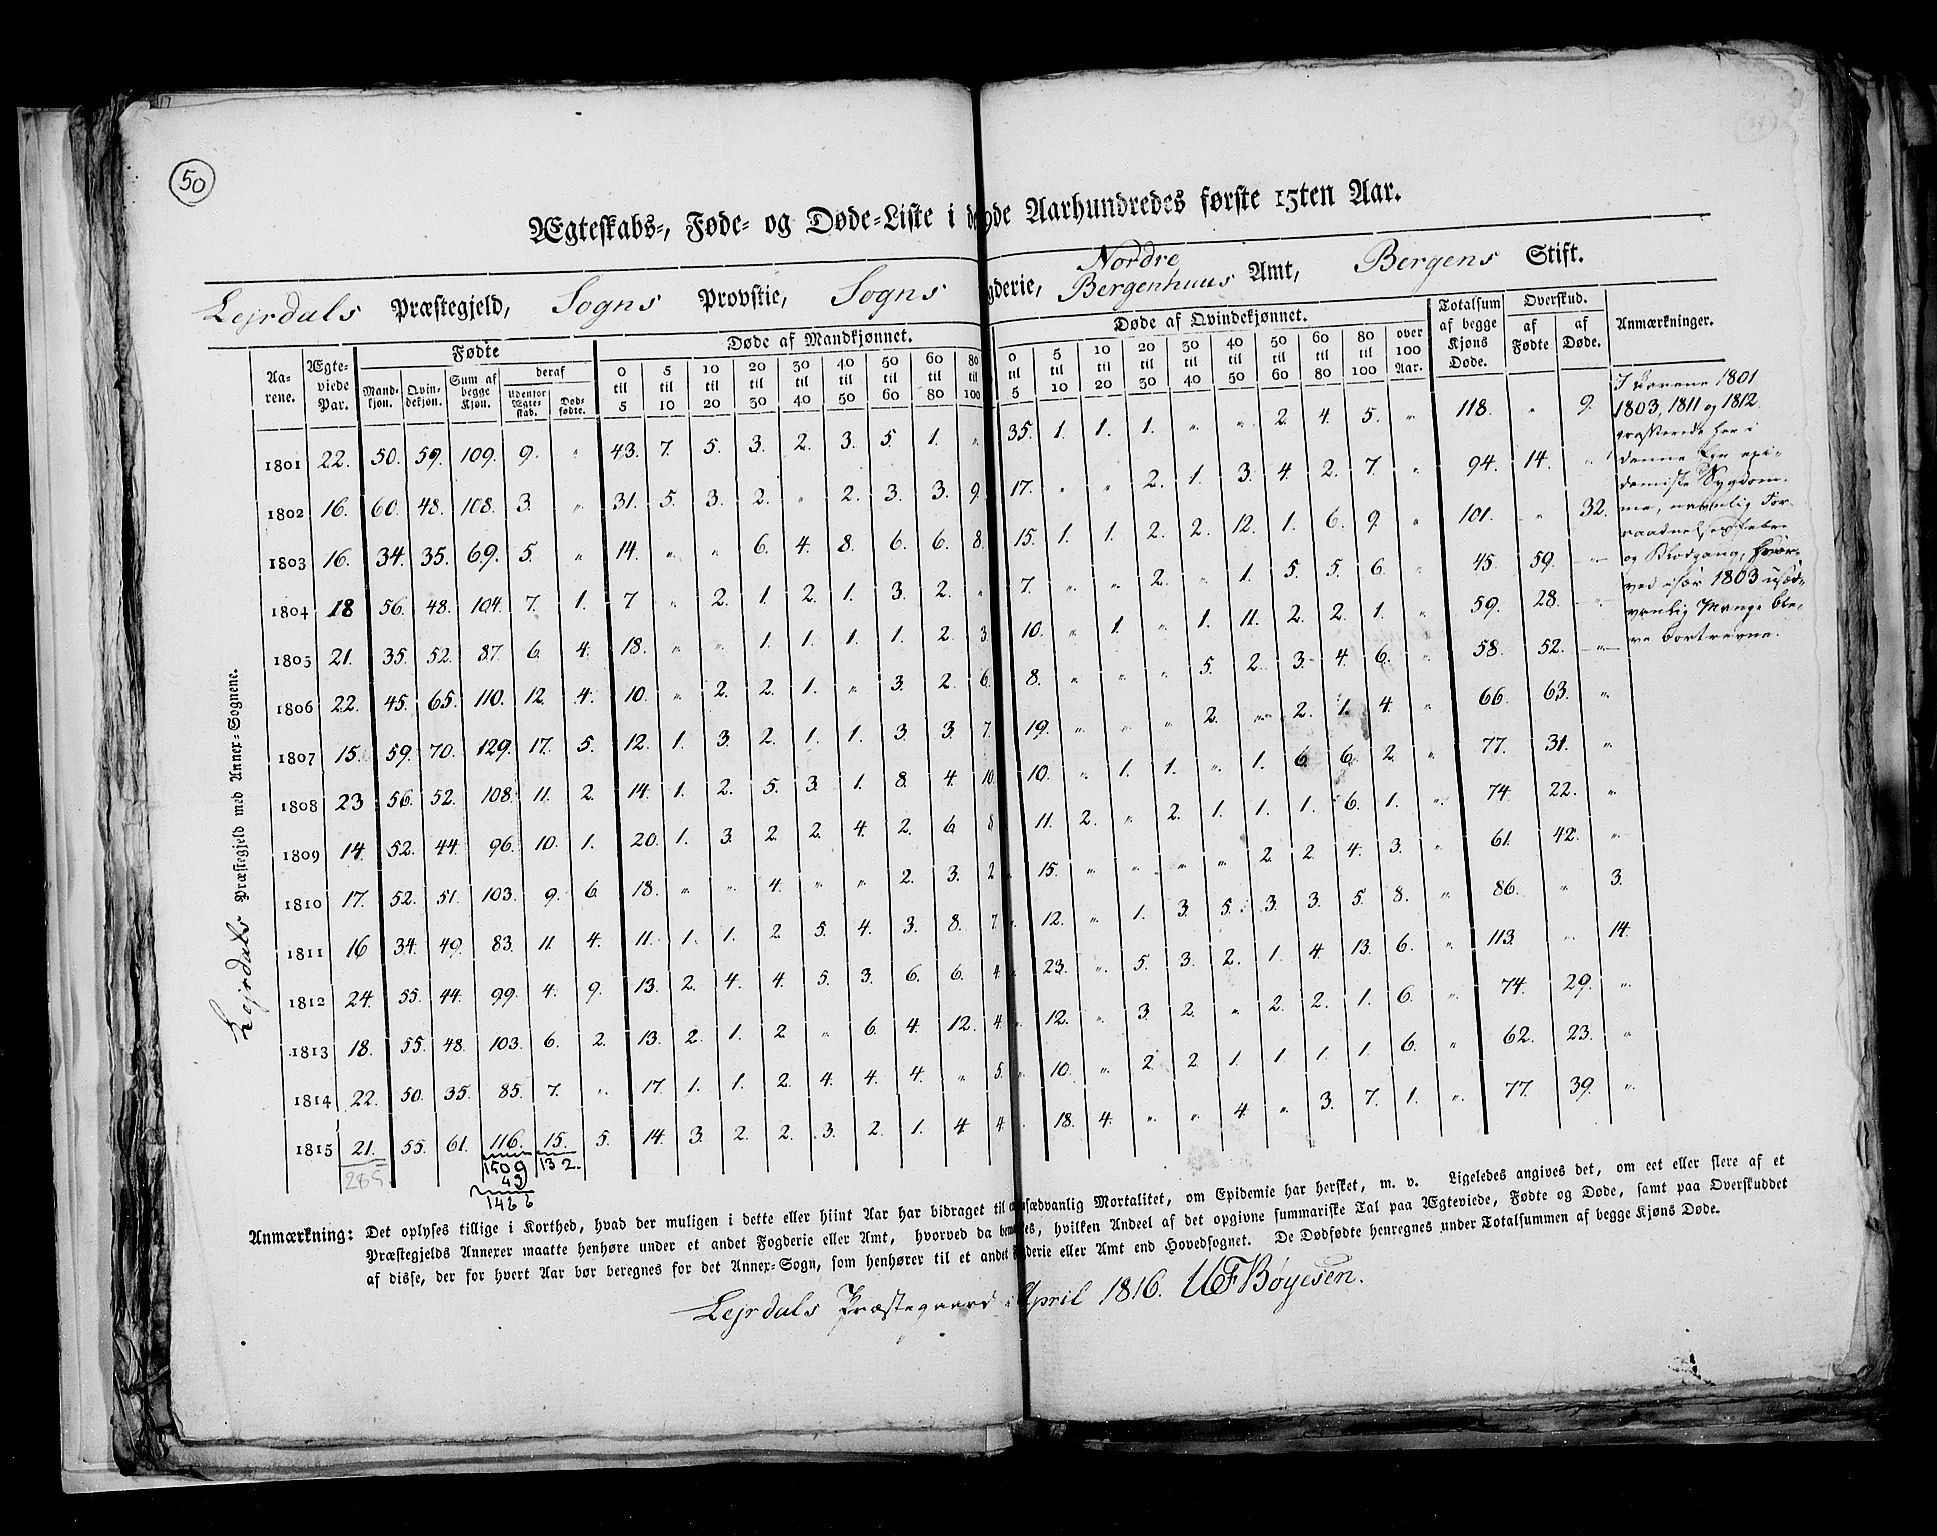 50
Ægteskabs-, Føde- og Døde-Liste i d yde Aarhundredes første 15ten Aar.
Lejrdals Præstegjeld, Sogns Provstie, Sogns gderie, Nordre Bergenhuus Amt, Bergens Stift.
Aa-rene. | Ægte-viede Par. | Fødte | Døde af Mandkjønnet. | Døde af Qvindekjønnet. | Totalsum af begge Kjøns Døde. | Overskud. | Anmærkninger.
Mand-kjøn. | Qvin-dekjøn. | Sum af begge Kjøn. | deraf | Udenfor Ægte-skab. | Død-fødte. | 0 til 5 | 5 til 10 | 10 til 20 | 20 til 30 | 30 til 40 | 40 til 50 | 50 til 60 | 60 til 80 | 80 til 100 | 0 til 5 | 5 til 10 | 10 til 20 | 20 til 30 | 30 til 40 | 40 til 50 | 50 til 60 | 60 til 80 | 80 til 100 | over 100 Aar. | af Fødte | af Døde.
1801 22. 50. 59. 109. 9. " 43. 7. 5. 3. 2. 3. 5. 1. " 35. 1. 1. 1. " " 2. 4. 5. " 118. " 9.
1802 16. 60. 48. 108. 3. " 31. 5. 3. 2. " 2. 3. 3. 9. 17. " " 2. 1. 3. 4. 2. 7. " 94. 14. "
1803 16. 34. 35. 69. 5. " 14. " " 6. 4. 8. 6. 6. 8. 15. 1. 1. 2. 2. 12. 1. 6. 9. " 101. " 32.
1804 18 56. 48. 104. 7. 1. 7 " 2. 1. 2. 1. 3. 2. " 7. " " 2. " 1. 5. 5. 6. " 45. 59. "
1805 21. 35. 52. 87. 6. 4. 18. " " 1. 1. 1. 1. 2. 3 10. " 1. " 1. 11. 2. 2. 1. " 59. 28. "
1806 22. 45. 65. 110. 12. 4. 10. " 2. 2. 1. " 3. 2. 6. 8. " " " 5. 2. 3. 4. 6. " 58. 52. "
1807 15. 59. 70. 129. 17. 5. 12. 1. 3. 2. 1. 1. 3. 3. 7. 19. " " " 2. " 2. 1. 4. " 66. 63. "
1808 23 56. 52. 108. 11. 2. 14. 1. 2. 5. 3. 1. 8. 4. 10 10. " 1. 1. " 1. 6. 6. 2. " 77. 31. "
1809 14. 52. 44. 96. 10. 1. 20. 1. 3. 2. 2. 4. 2. 6 8 11. 2. " 2. 1. 1. 1. 6. 1. " 74. 22. "
1810 17. 52. 51. 103. 9. 6. 18. " " 4. " " 2. 3. 2 15. " " " " 2. 2. 4. 3. " 61. 42. "
1811 16 34. 49. 83. 11. 4. 11. 1. 1. 2. 5. 4. 3. 8. 7 12. " 1. 3. 5. 3. 3. 5. 8. " 86. " 3.
1812 24. 55. 44. 99. 4. 9. 13. 2. 4. 4. 5. 3. 6. 6. 4. 23. " 5. 3. 2. 1. 4. 13. 6. " 113. " 14.
1813 18. 55. 48. 103. 6. 2. 13. 2. 1. 2 " 6. 4. 12. 4. 12. " 3. 2. " 2. 2. 1. 6. " 74. 29. "
1814 22. 50. 35. 85. 7. " 17 1. 1. 2. 4. 4. 4. " 5. 10. " 2. 2. 1. 1. 1. 1. 6. " 62. 23. "
1815 21. 55. 61. 116. 15. 5. 14. 3. 2. 2. 3. 2. 1. 4. 4. 18. 4. " " 4. " 3. 7. 1. " 77. 39. "
285 1509 132.
43
1466
I Aarene 1801
1803, 1811 og 1812
grasserede her i
denne Egn epi-
demiske Sygdom-
me, navnlig For-
raadnelsesfeber
og Blodgang, hvor-
ved især 1803 usæd-
vanlig Mange ble-
ve bortrevne.
Lejrdals Præstegjeld med Annex-Sognene.
Anmærkning: Det oplyses tillige i Korthed, hvad der muligen i dette eller hiint Aar har bidraget til usædvanlig Mortalitet, om Epidemie har hersket, m. v. Ligeledes angives det, om eet eller flere af et
Præstegjelds Annexer maatte henhøre under et andet Fogderie eller Amt, hvorved da bem es, hvilken Andeel af det opgivne summariske Tal paa Ægteviede, Fødte og Døde, samt paa Overskuddet
af disse, der for hvert Aar bør beregnes for det Annex-Sogn, som henhører til et andet derie eller Amt end Hovedsognet. De Dødfødte henregnes under Totalsummen af begge Kjøns Døde.
Lejrdals Præstegaard i April 1816. UFBøyesen.